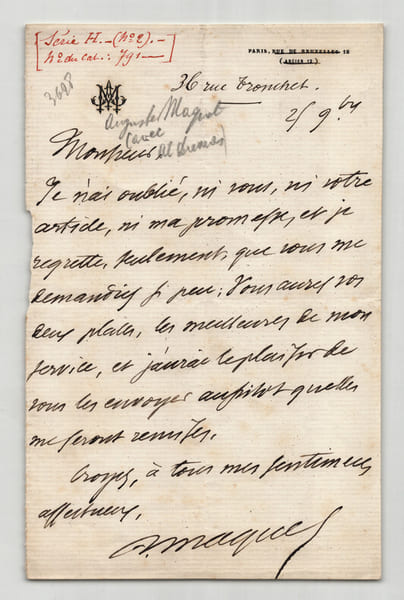 Série H. — (No 2). —
No du Cat.: 791 —
PARIS, RUE DE BRUXELLES 12
(ANCIEN 12)
3698
36 rue Tronchet.
Auguste Maquet
(avec
Al Dumas)
25 9bre
Monsieur,
Je n'ai oublié, ni vous, ni votre
article, ni ma promesse, et je
regrette, seulement, que vous me
demandiez si peu; Vous aurez vos
deux places, les meilleures de mon
service, et j'aurai le plaisir de
vous les envoyer aussitôt qu'elles
me seront remises.
Croyez, à tous mes sentiments
affectueux,
A. Maquet